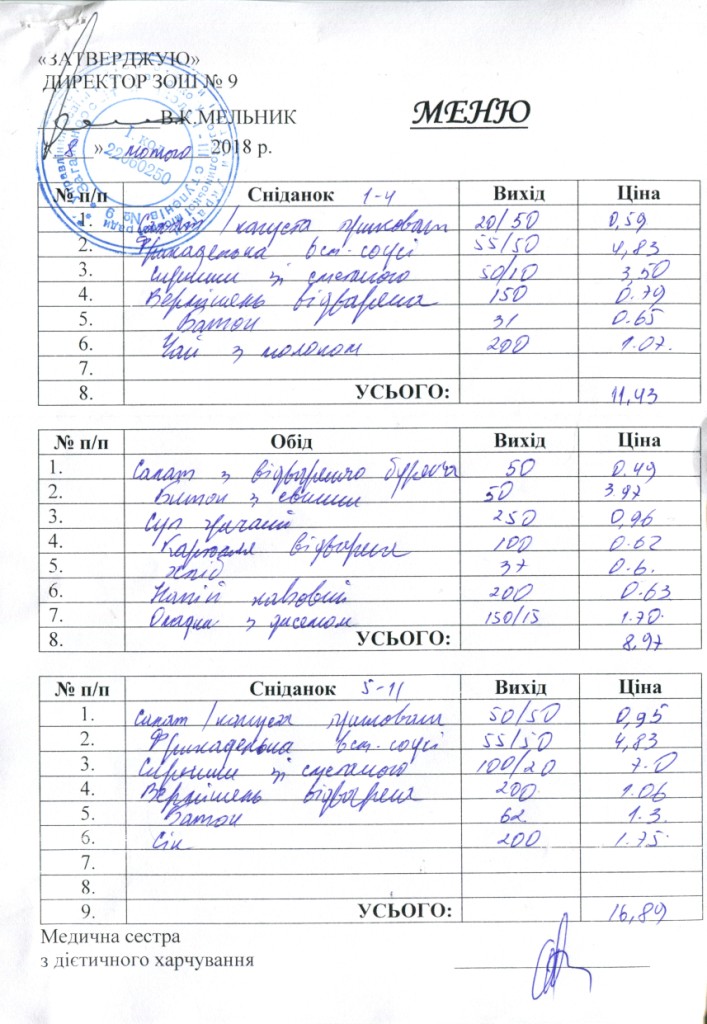 «ЗАТВЕРДЖУЮ»
ДИРЕКТОР ЗОШ № 9
В.К.МЕЛЬНИК
МЕНЮ
«8» лютого 2018 р.
22660250
№ п/п Сніданок 1-4 Вихід Ціна
1. Салат /капуста тушкована 20/50 0,59
2. Фрикаделька в см. соусі 55/50 4,83
3. Сирники зі сметаною 50/10 3,50
4. Вермішель відварена 150 0.79
5. Батон 31 0.65
6. Чай з молоком 200 1.07.
7.
8. УСЬОГО: 11,43
№ п/п Обід Вихід Ціна
1. Салат з відвареного буряка 50 0.49
2. Биток з свинини 50 3.97
3. Суп 250 0,96
4. Картопля відварена 100 0.62
5. Хліб 37 0.6.
6. Напій кавовий 200 0.63
7. Оладки з джемом 150/15 1.70.
8. УСЬОГО: 8,97
№ п/п Сніданок 5-11 Вихід Ціна
1. Салат /капуста тушкована 50/50 0,95
2. Фрикаделька в см. соусі 55/50 4,83
3. Сирники зі сметаною 100/20 7.0
4. Вермішель відварена 200 1.06
5. Батон 62 1.3
6. Сік 200 1.75.
7.
8.
9. УСЬОГО: 16,89
Медична сестра
з дієтичного харчування